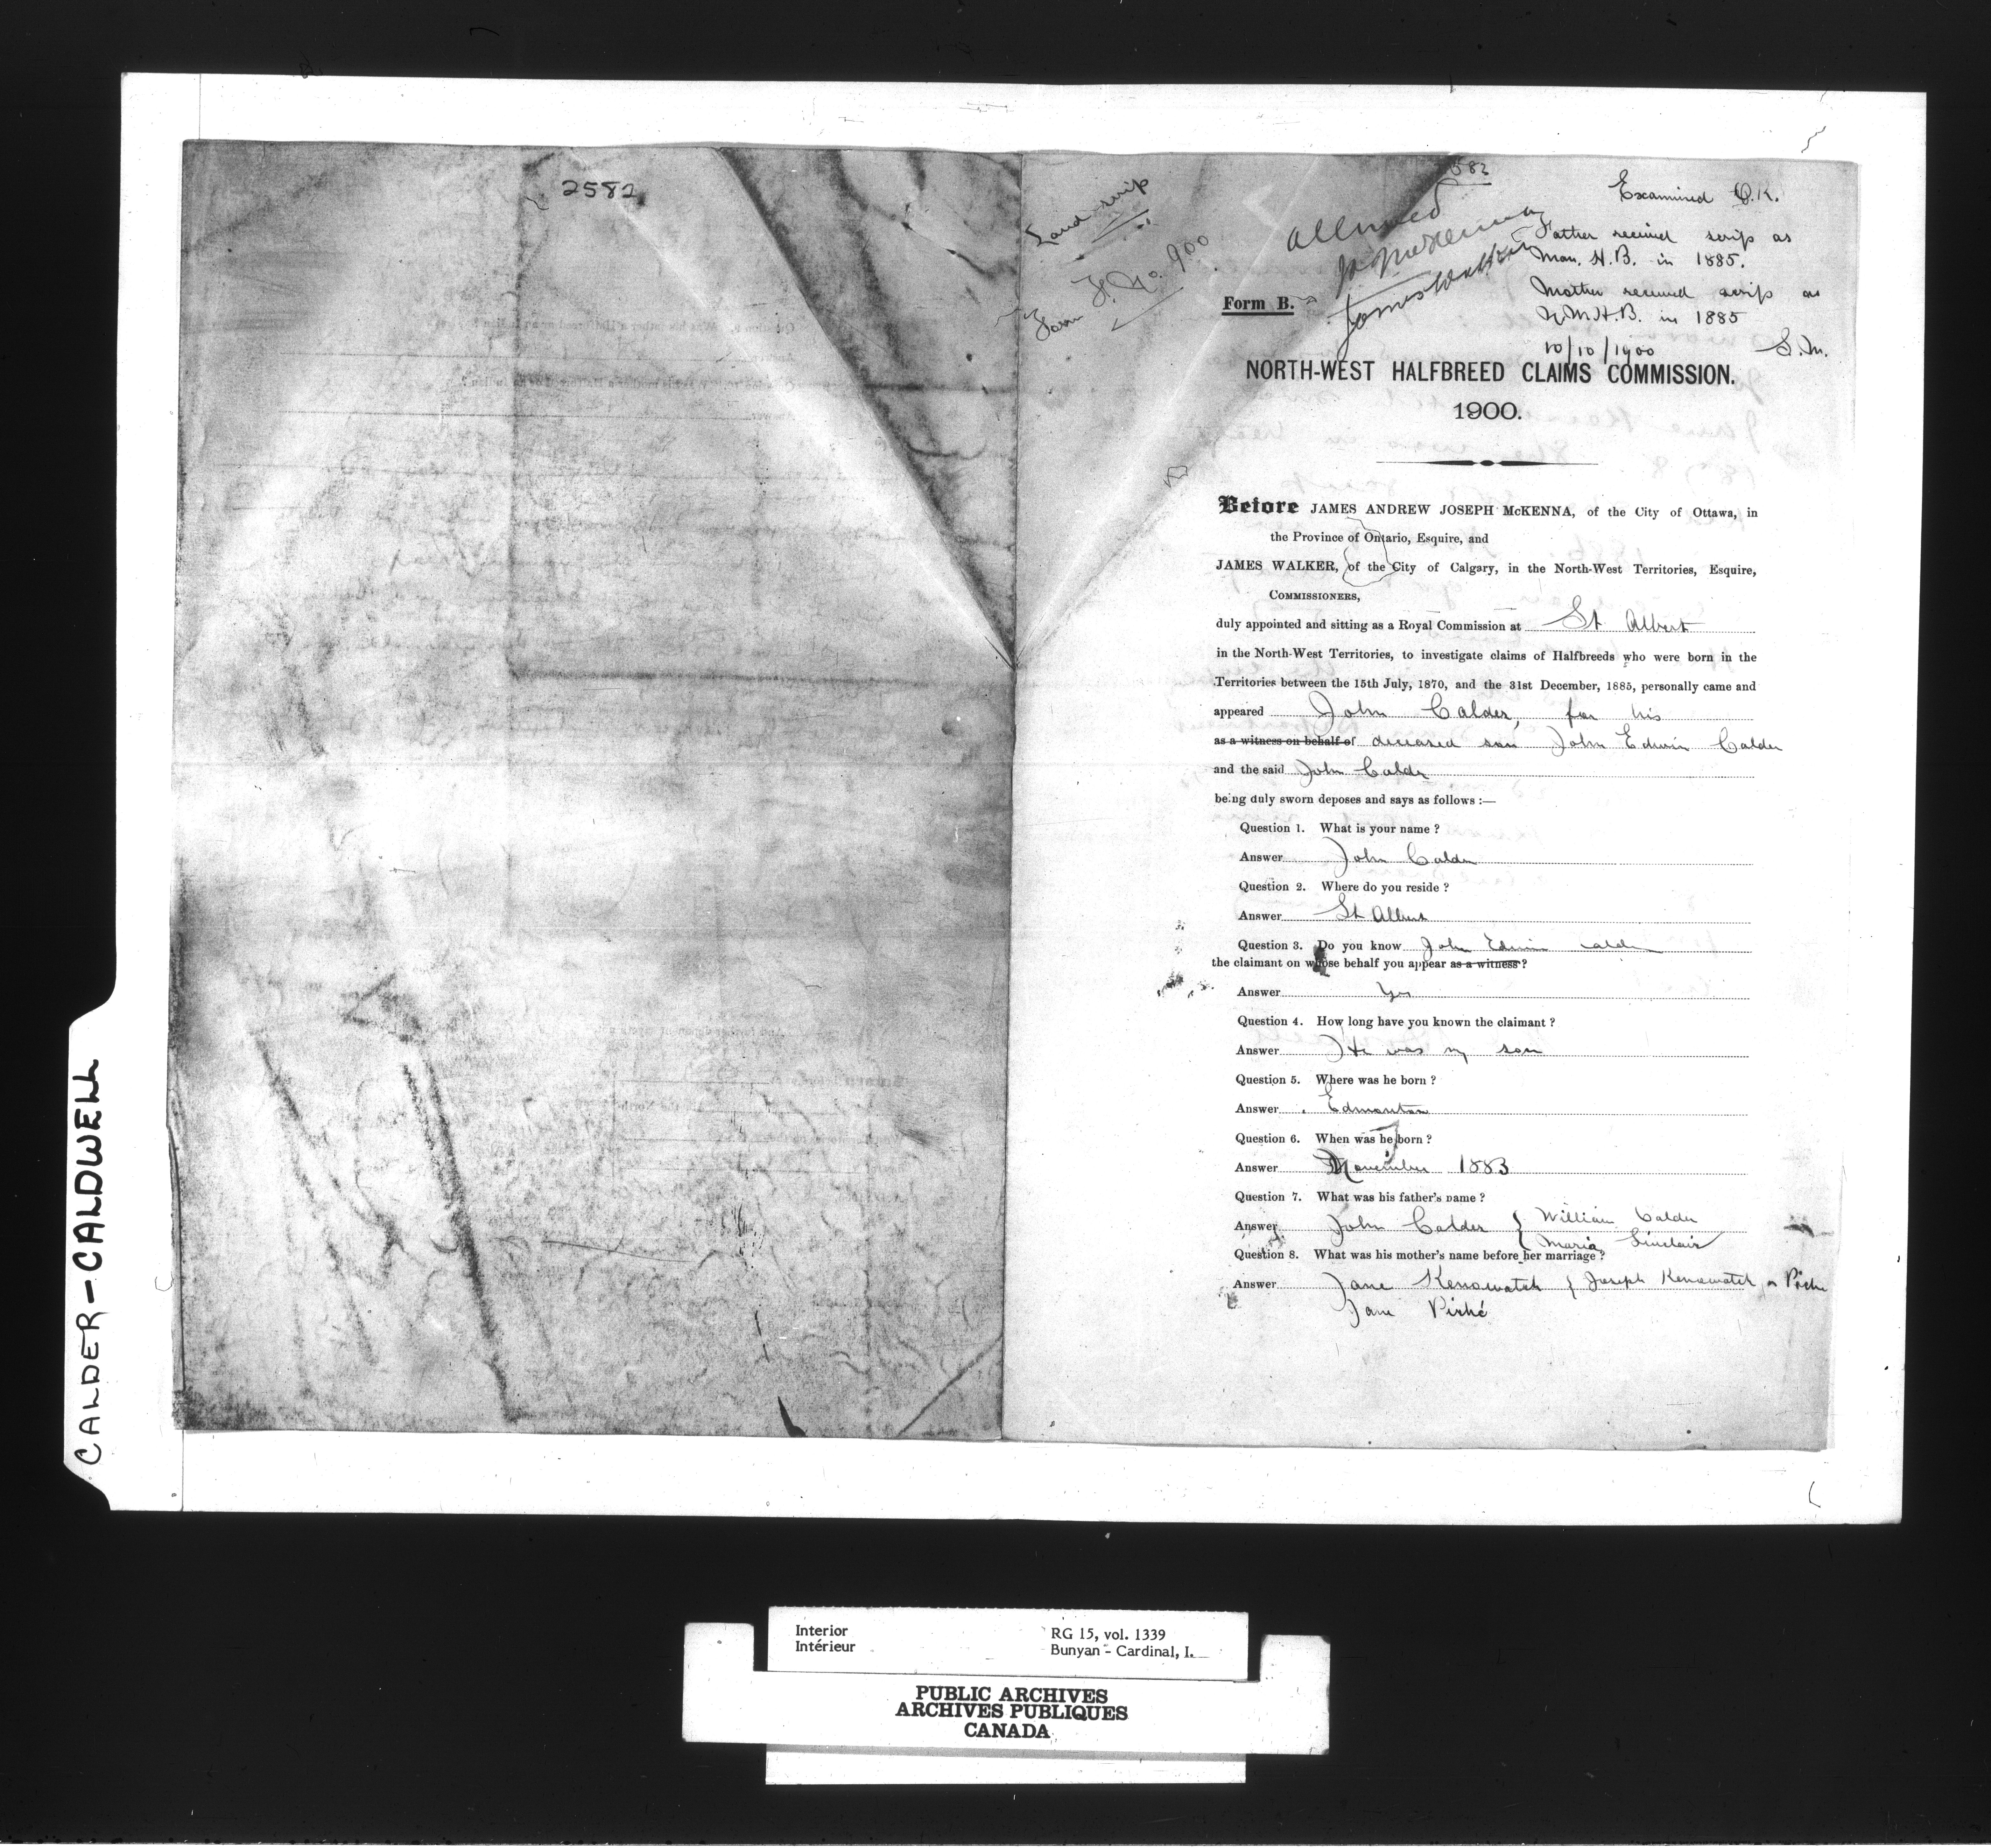 2582
Land scrip
Form F. No. 900
582
allowed
Examined O.K.
Father received scrip as
Man. H.B. in 1885.
Mother received scrip as
N.W.H.B. in 1885
10/10/1900 S.M.
James Walker
Form B.
NORTH-WEST HALFBREED CLAIMS COMMISSION.
1900.
Before JAMES ANDREW JOSEPH McKENNA, of the City of Ottawa, in
the Province of Ontario, Esquire, and
JAMES WALKER, of the City of Calgary, in the North-West Territories, Esquire,
COMMISSIONERS,
duly appointed and sitting as a Royal Commission at St Albert
in the North-West Territories, to investigate claims of Halfbreeds who were born in the
Territories between the 15th July, 1870, and the 31st December, 1885, personally came and
appeared John Calder, for his
as a witness on behalf of deceased son John Edwin Calder
and the said John Calder
being duly sworn deposes and says as follows :—
Question 1. What is your name ?
Answer John Calder
Question 2. Where do you reside ?
Answer St Albert
Question 3. Do you know John Edwin Calder
the claimant on whose behalf you appear as a witness ?
Answer Yes
Question 4. How long have you known the claimant ?
Answer He was my son
Question 5. Where was he born ?
Answer Edmonton
Question 6. When was he born ?
Answer November 1883
Question 7. What was his father's name ?
Answer John Calder { William Calder
Maria Sinclair
Question 8. What was his mother's name before her marriage ?
Answer Jane Kenowatch { Joseph Kenowatch or Piché
Jane Piché
CALDER-CALDWELL
Interior RG 15, vol. 1339
Intérieur Bunyan - Cardinal, I.
PUBLIC ARCHIVES
ARCHIVES PUBLIQUES
CANADA